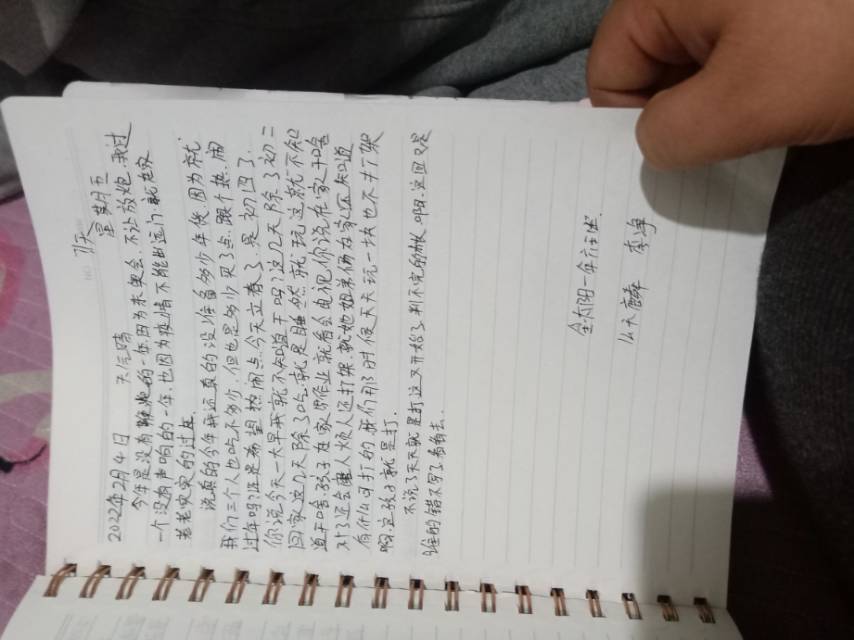 11天
2022年2月4日 天气晴 星期五
今年是没有鞭炮的一年因为未奥会,不让放炮,我过
一个没有声响的一年,也因为疫情不能出远门,就在家
老老实实的过年
说真的今年我还真的没准备多少年货因为就
我们三个人也吃不多少,但也是多少买了点,跟个热闹
过年吗,谁是希望热闹点今天立春了,是初四了,
你说今天一大早我就不知道干吗,这几天除了初二
回家这几天除了吃就是睡然就玩这就不知
道干啥,孩子在家里作业就看会电视你说在家干啥
对了还会烦人还打架,就她姐弟俩在家还知道
有什么可打的我们那时候天天玩一块也不打架
啊,这孩子就是打.
不说了天天就是打这又开始了判不完的官,这回又是
谁的错不写了看看去.
全太阳一年六主
么天麟 李净